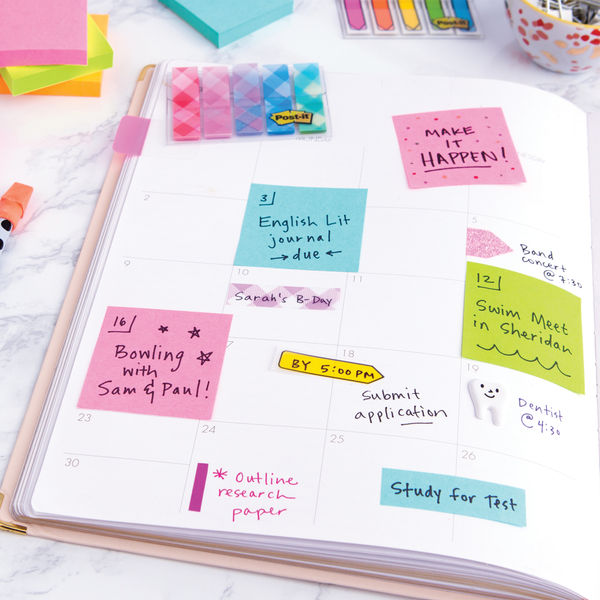 Post-it
Post-it
MAKE
IT
HAPPEN!
2
3
English Lit
journal
→due←
5
Band
concert
@ 7:30
9
10
Sarah's B-Day
11
12
Swim Meet
in Sheridan
16
Bowling
with
Sam & Paul!
7
BY 5:00PM
18
Submit
application
19
Dentist
@ 4:30
23
24
* Outline
research
paper
25
26
Study for Test
30